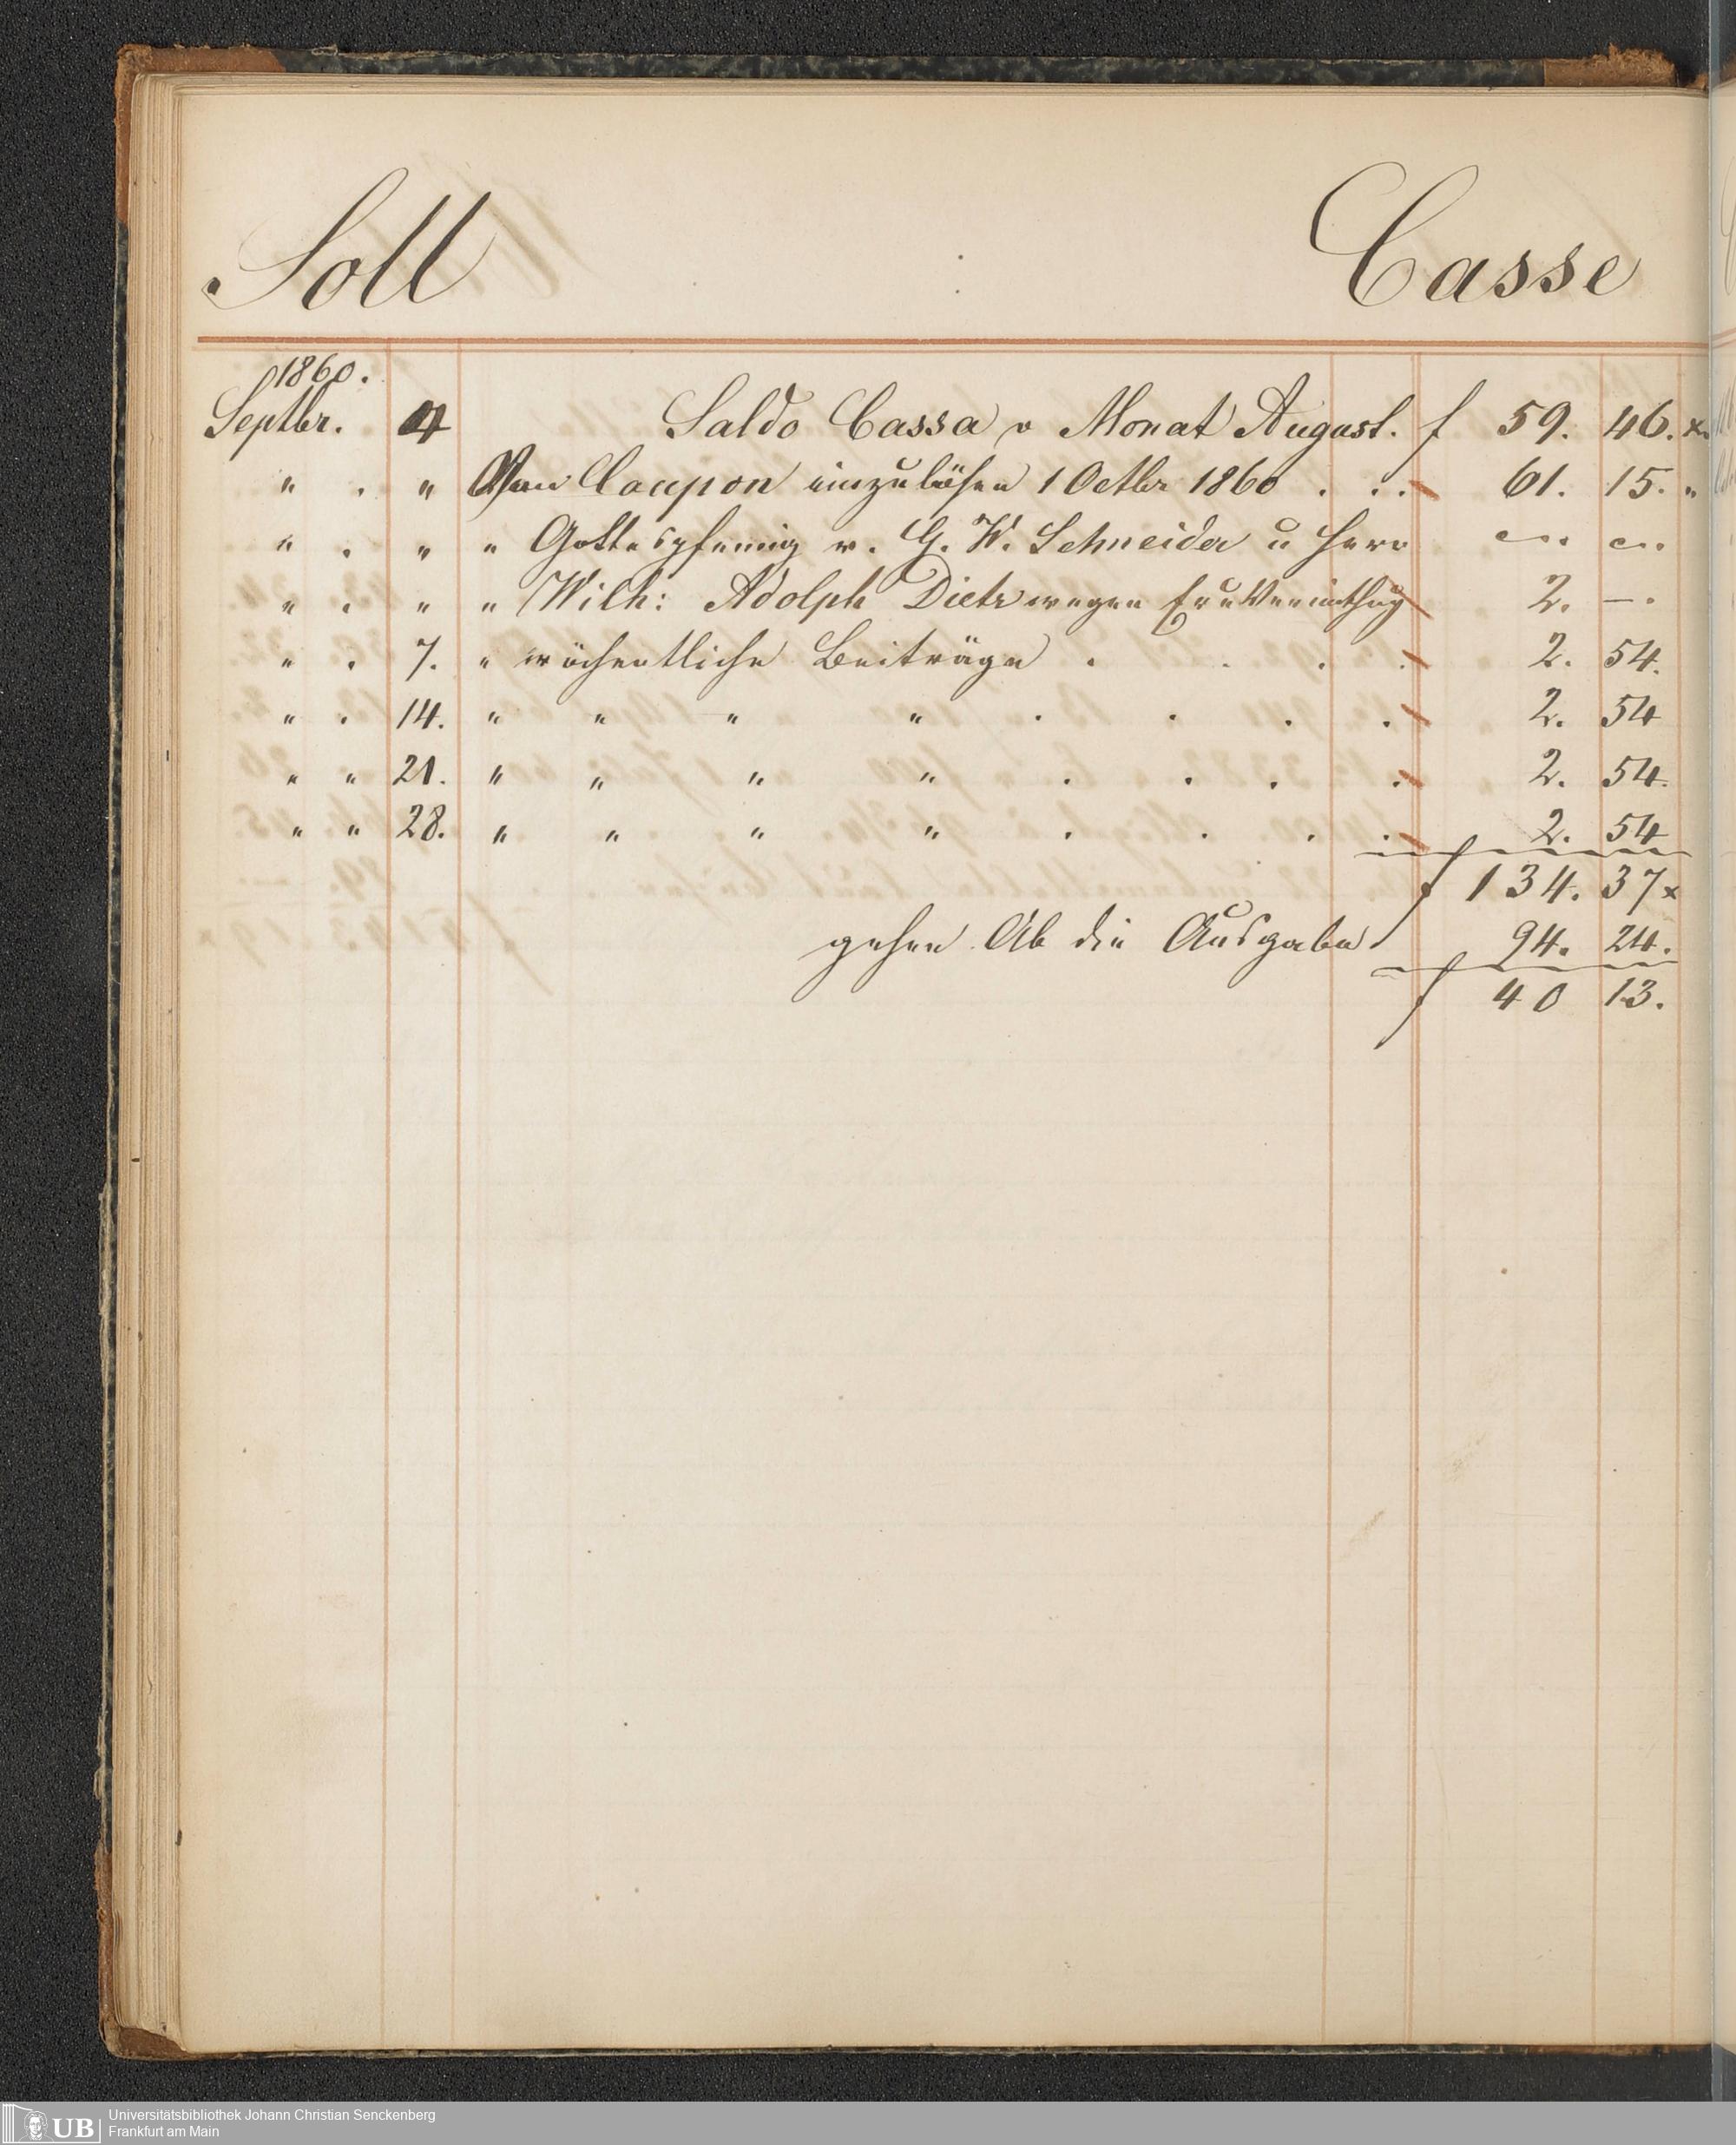 Soll Casse
1860.
Septbr. 4 Saldo Cassa v Monat August. f 59. 46. x.
" . " Coupon einzulösen 1 Octbr 1860 . . . 61. 15. "
" . " " Gottespfennig v. G. W. Schneider u Herr
" . " " Wilh: Adolph Dietz wegen 2. — .
" . 7. " wöchentliche Beiträge . . . . 2. 54.
" . 14. " " " " . . . . 2. 54
" " 21. " " " " . . . . 2. 54.
" " 28. " " " " . . . . 2. 54
f 134. 37 x
gehen Ab die Ausgabe 94. 24.
f 40 13.
UB Universitätsbibliothek Johann Christian Senckenberg
Frankfurt am Main